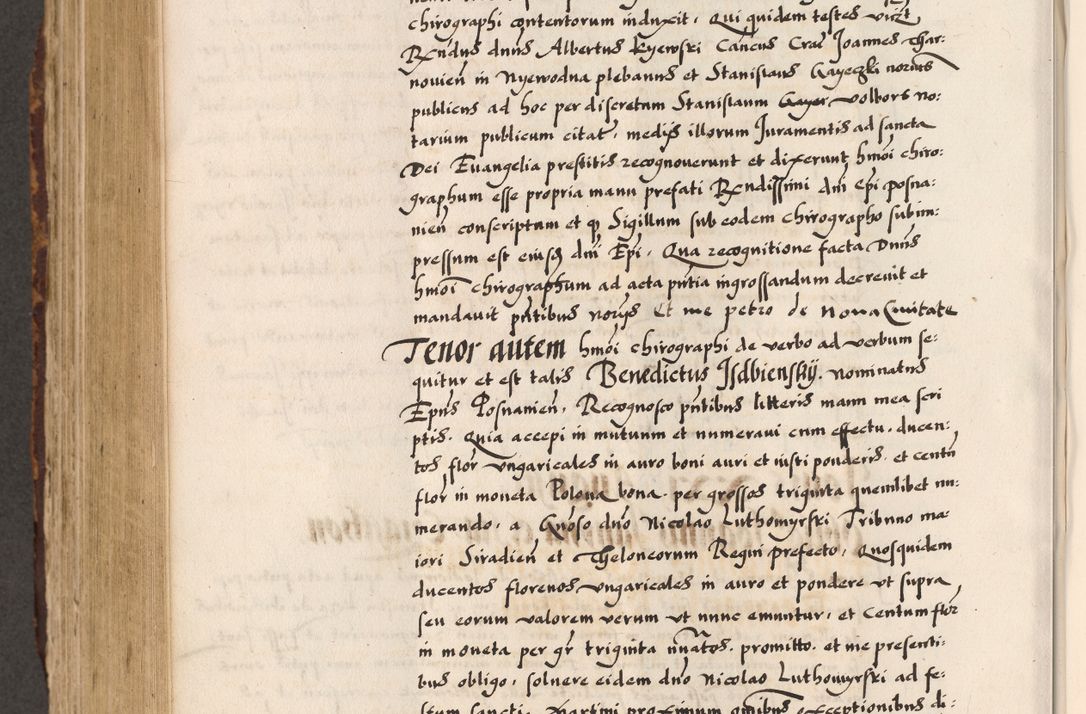 chirographi contentorum induxit, Qui quidem testes vicz͞t
R͞endus dn͞us Albertus Kyewski Canc͞us Crac͞ Joannes Thar:
novien͞ in Nyewodna plebanus et Stanislaus Gayeczki nor͞ius
publicus ad hoc per discretum Stanislaum Gayer voltors no:
tarium publicum citat͞, medijs illorum Juramentis ad sancta
Dei Evangelia prestitis recognoverunt et dixerunt h͞moi chiro:
graphum esse propria manu prefati R͞endissimi dn͞i Ep͞i posna:
nien͞ conscriptum et q Sigillum sub eodem chirographo subim:
pressum est eiusd͞ dn͞i Ep͞i, Qua recognitione facta Dn͞us
h͞moi chirographum ad acta pn͞tia ingrossandum decrevit et
mandavit pn͞tibus nor͞ijs Et me petro de Nova Civitate
Tenor autem h͞moi chirographi de verbo ad verbum se:
quitur et est talis Benedictus Isdbiensky. nominatus
Ep͞us Posnanien͞, Recognosco pn͞tibus litteris manu mea scri
ptis. Quia accepi in mutuum et numeravi cum effectu. ducen:
tos flor͞ ungaricales in auro boni auri et iusti ponderis. et centu͞
flor͞ in moneta Polona bona. per grossos triginta quemlibet nu:
merando, a G͞noso dn͞o Nicolao Luthomyrski Tribuno ma:
iori Siradien͞ et Theloneorum Regni prefecto, Quosquidem
ducentos florenos ungaricales in auro et pondere ut supra
seu eorum valorem verum ut nunc emuntur, et Centum flor͞
in moneta per gr͞ triginta nu͞atos. promitto. et me presenti:
bus obligo, solvere eidem dn͞o Nicolao Luthomyrski ad fe:
stum sancti Martini proximum omnibus exceptionibus di: